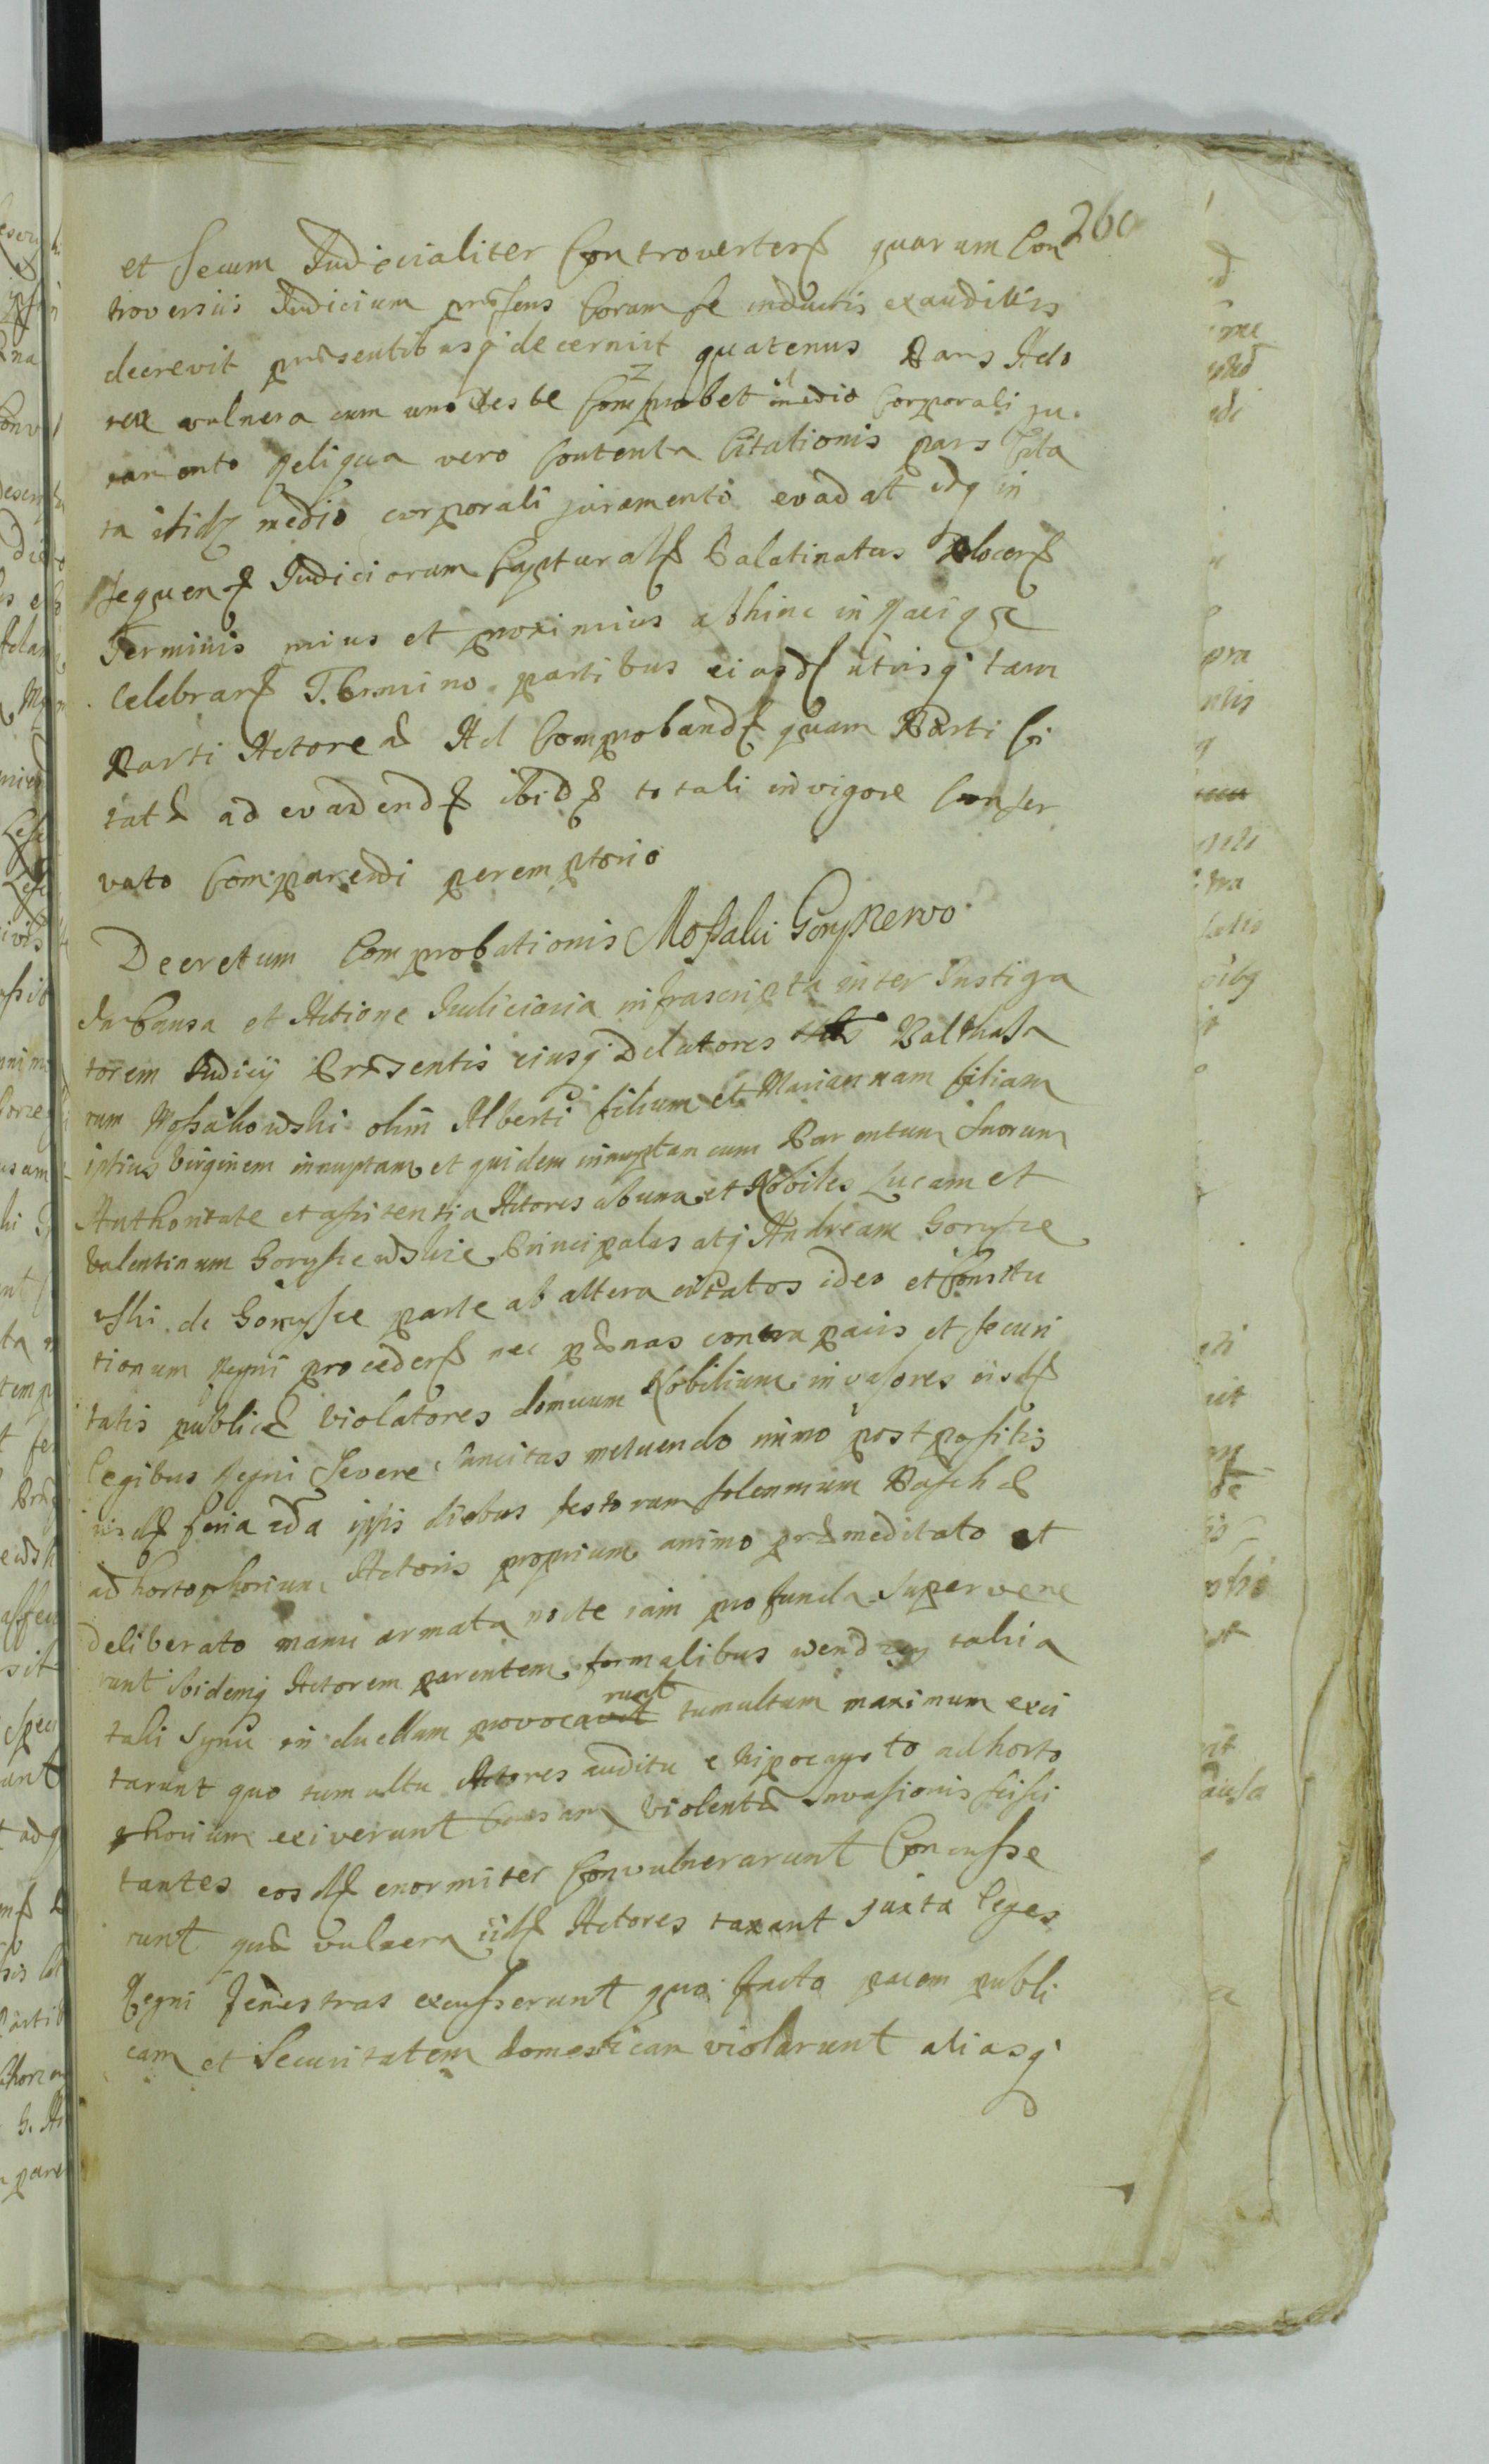 260
et secum Judicialiter Controverten quarum Con
troversiis Judicium præsens Coram se inductis exauditis
decrevit præsentibusq decernit quatenus Pars Acto
rea vulnera cum uno teste Comprobet medio Corporali ju
ramento Reliqua vero Contenta Citationis pars Cita
ta itidq medio corporali juramento evadat idq in
sequen Judiciorum Captural Palatinatus Plocen
Terminis prius et proximius abhinc in Raciąz
Celebran Termino partibus eiusd utrisq tam
Parti Actoreæ Ad Comproband quam Parti Ci
tatæ ad evadend ibid totali in vigore Conser
vato Comparendi peremptorio
Decretum Comprobationis Mossaki Goryszewo
In Causa et Actione Judiciaria infrascripta inter Instiga
torem Judicij Præsentis eiusq Delatores Balthasa
rum Mossakowski olim Alberti filium et Mariannam filiam
ipsius Virginem innuptam et quidem innuptam cum Parentum suorum
Authoritate et assistentia Actores ab una et Nobiles Lucam et
Valentinum Goryszewskie Principales atq Andream Gorysze
wski de Gorysze parte ab altera citatos ideo et Constitu
tionum Regni proceden nec pænas contra pacis et securi
tatis publicæ Violatores domuum Nobilium invasores eisd
legibus Regni Severe sancitas metuendo immo postpositis
iisd feria 2da ipsis diebus festorum solennium Paschæ
ad hortophorium Actoris proprium animo præmeditato et
deliberato manu armata nocte iam profunda supervene
runt ibidemq Actorem parentem formalibus wend talia
tali Synu in duellum provocarunt tumultum maximum exci
tarunt quo tumultu Actores auditu e hipocausto ad horto
phorium exiverunt Causam Violentæ Invasionis sciscі
tantes eosd enormiter Convulnerarunt Concusse
runt quæ vulnera iid Actores taxant juxta leges
Regni fenestras excusserunt quo facto pacem publi
cam et Securitatem domesticam violarunt aliasq